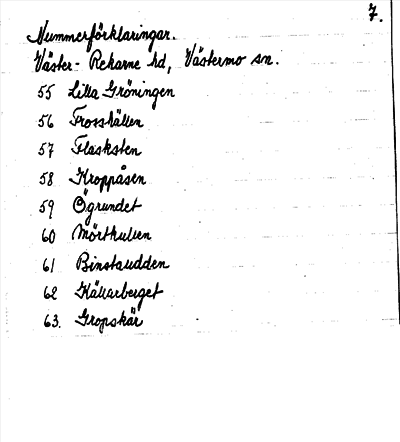 7.
Nummerförklaringar.
Väster-Rekarne hd, Västermo sn.
55 Lilla Gröningen
56 Frosshällen
57 Flasksten
58 Kroppåsen
59 Ögrundet
60 Mörtkulien
61 Binstaudden
62 Källarberget
63. Gropskär